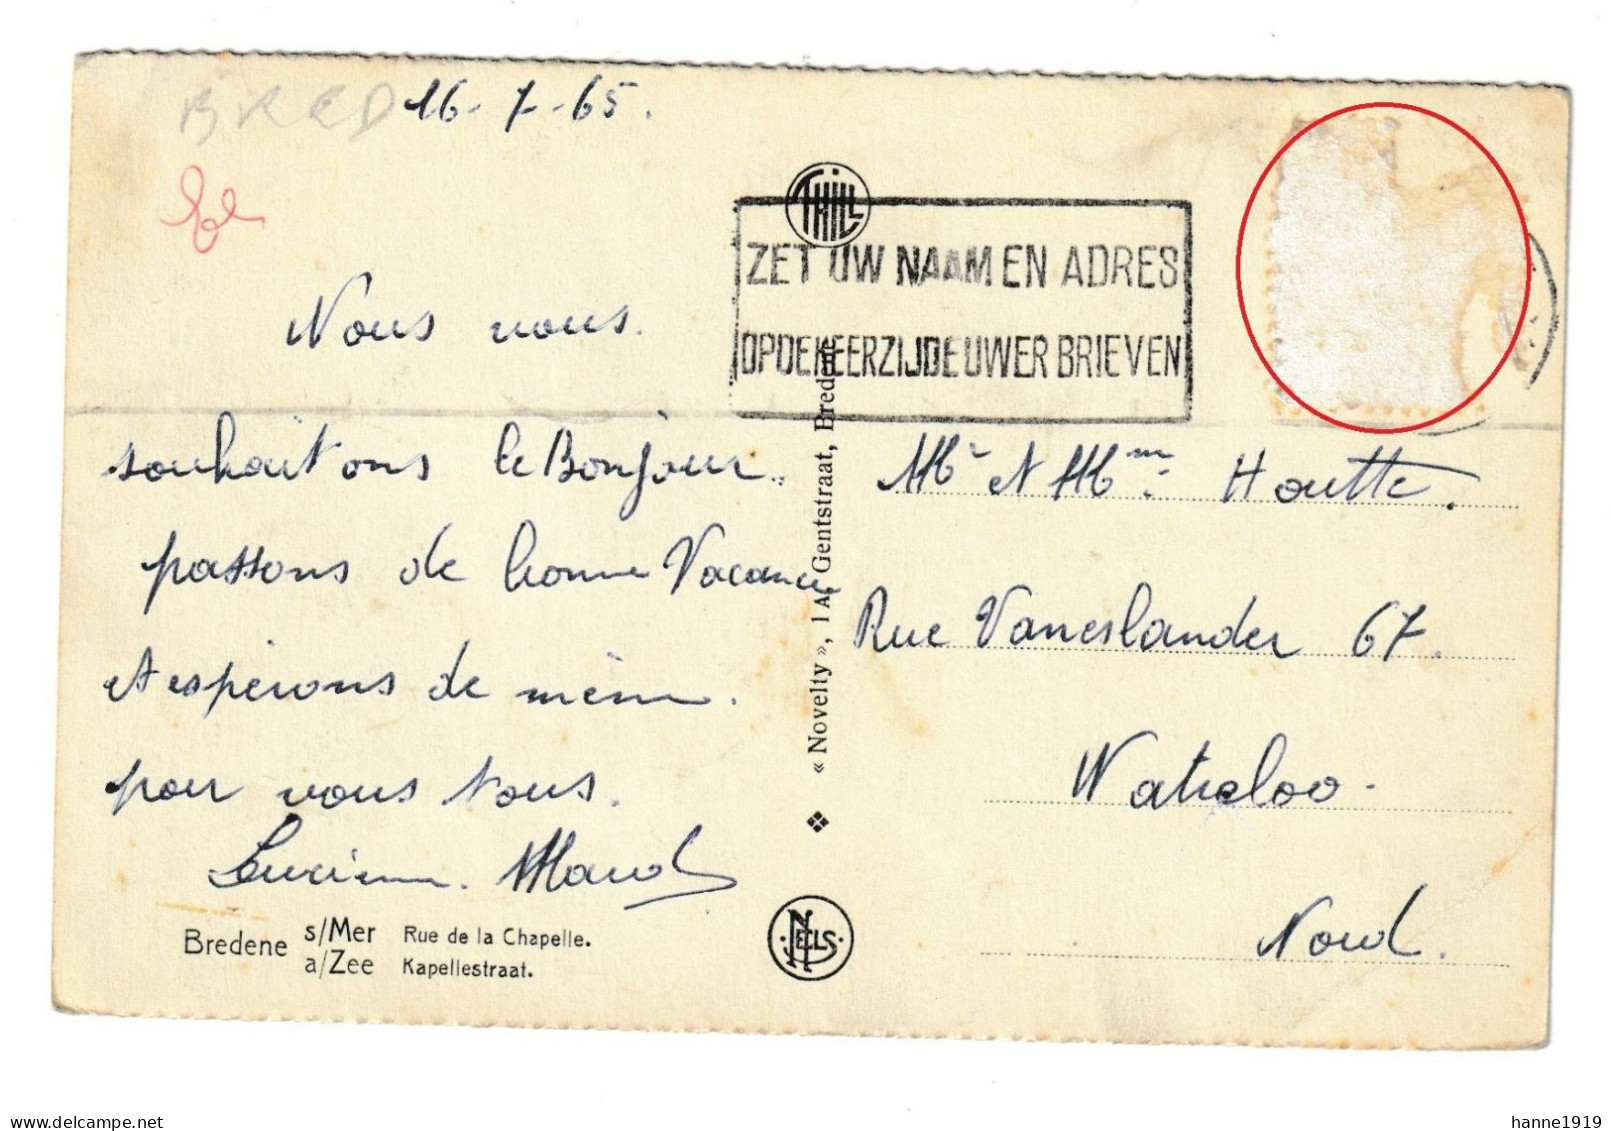 BRED 16-7-65.
THILL
ZET UW NAAM EN ADRES
OP DE KEERZIJDE UWER BRIEVEN
Nous vous.
souhaitons le Bonjour..
passons de bonne Vacance
et espérons de même.
pour vous tous.
Lucienne.
Mr et Mm: Houtte.
Rue Vaneslander 67.
Watreloo.
Nord.
« Novelty », 1A, Gentstraat, Bredene
NELS
Bredene s/Mer Rue de la Chapelle.
a/Zee Kapellestraat.
delcampe.net
hanne1919